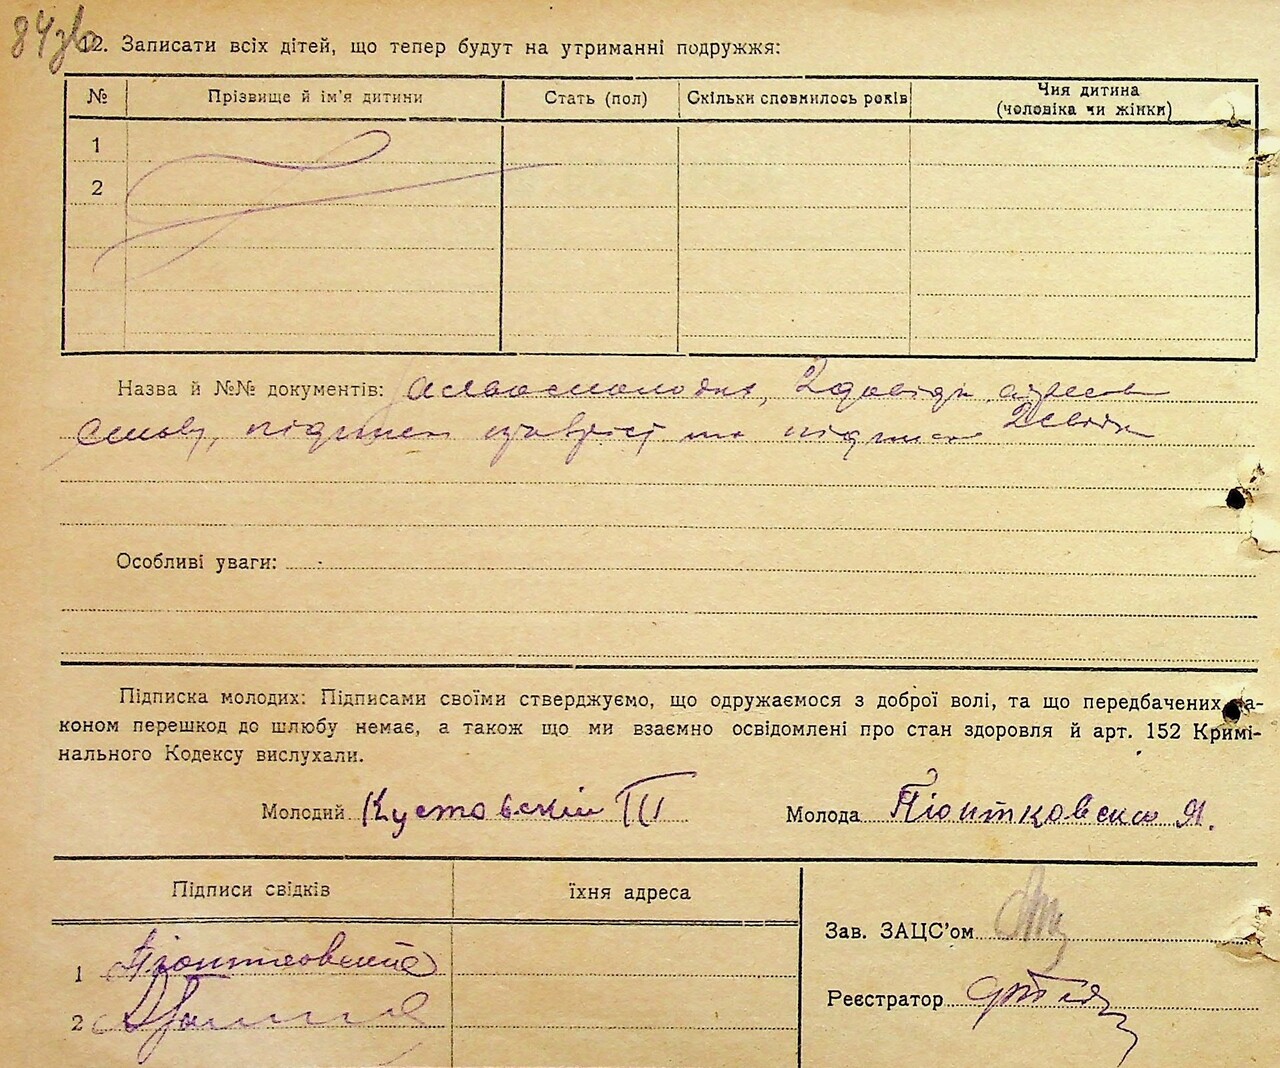 84зв
12. Записати всіх дітей, що тепер будут на утриманні подружжя:
№ Прізвище й ім'я дитини Стать (пол) Скільки сповнилось років Чия дитина
(чоловіка чи жінки)
1
2
Назва й №№ документів: 2 довідк адресов
підписи та підписи 2 свідк
Особливі уваги:
Підписка молодих: Підписами своїми стверджуємо, що одружаємося з доброї волі, та що передбачених за-
коном перешкод до шлюбу немає, а також що ми взаємно освідомлені про стан здоровля й арт. 152 Кримі-
нального Кодексу вислухали.
Молодий Кустовский Молода Піонтковска Я.
Підписи свідків їхня адреса
Зав. ЗАЦС'ом
1 Піонтковский
Реєстратор
2